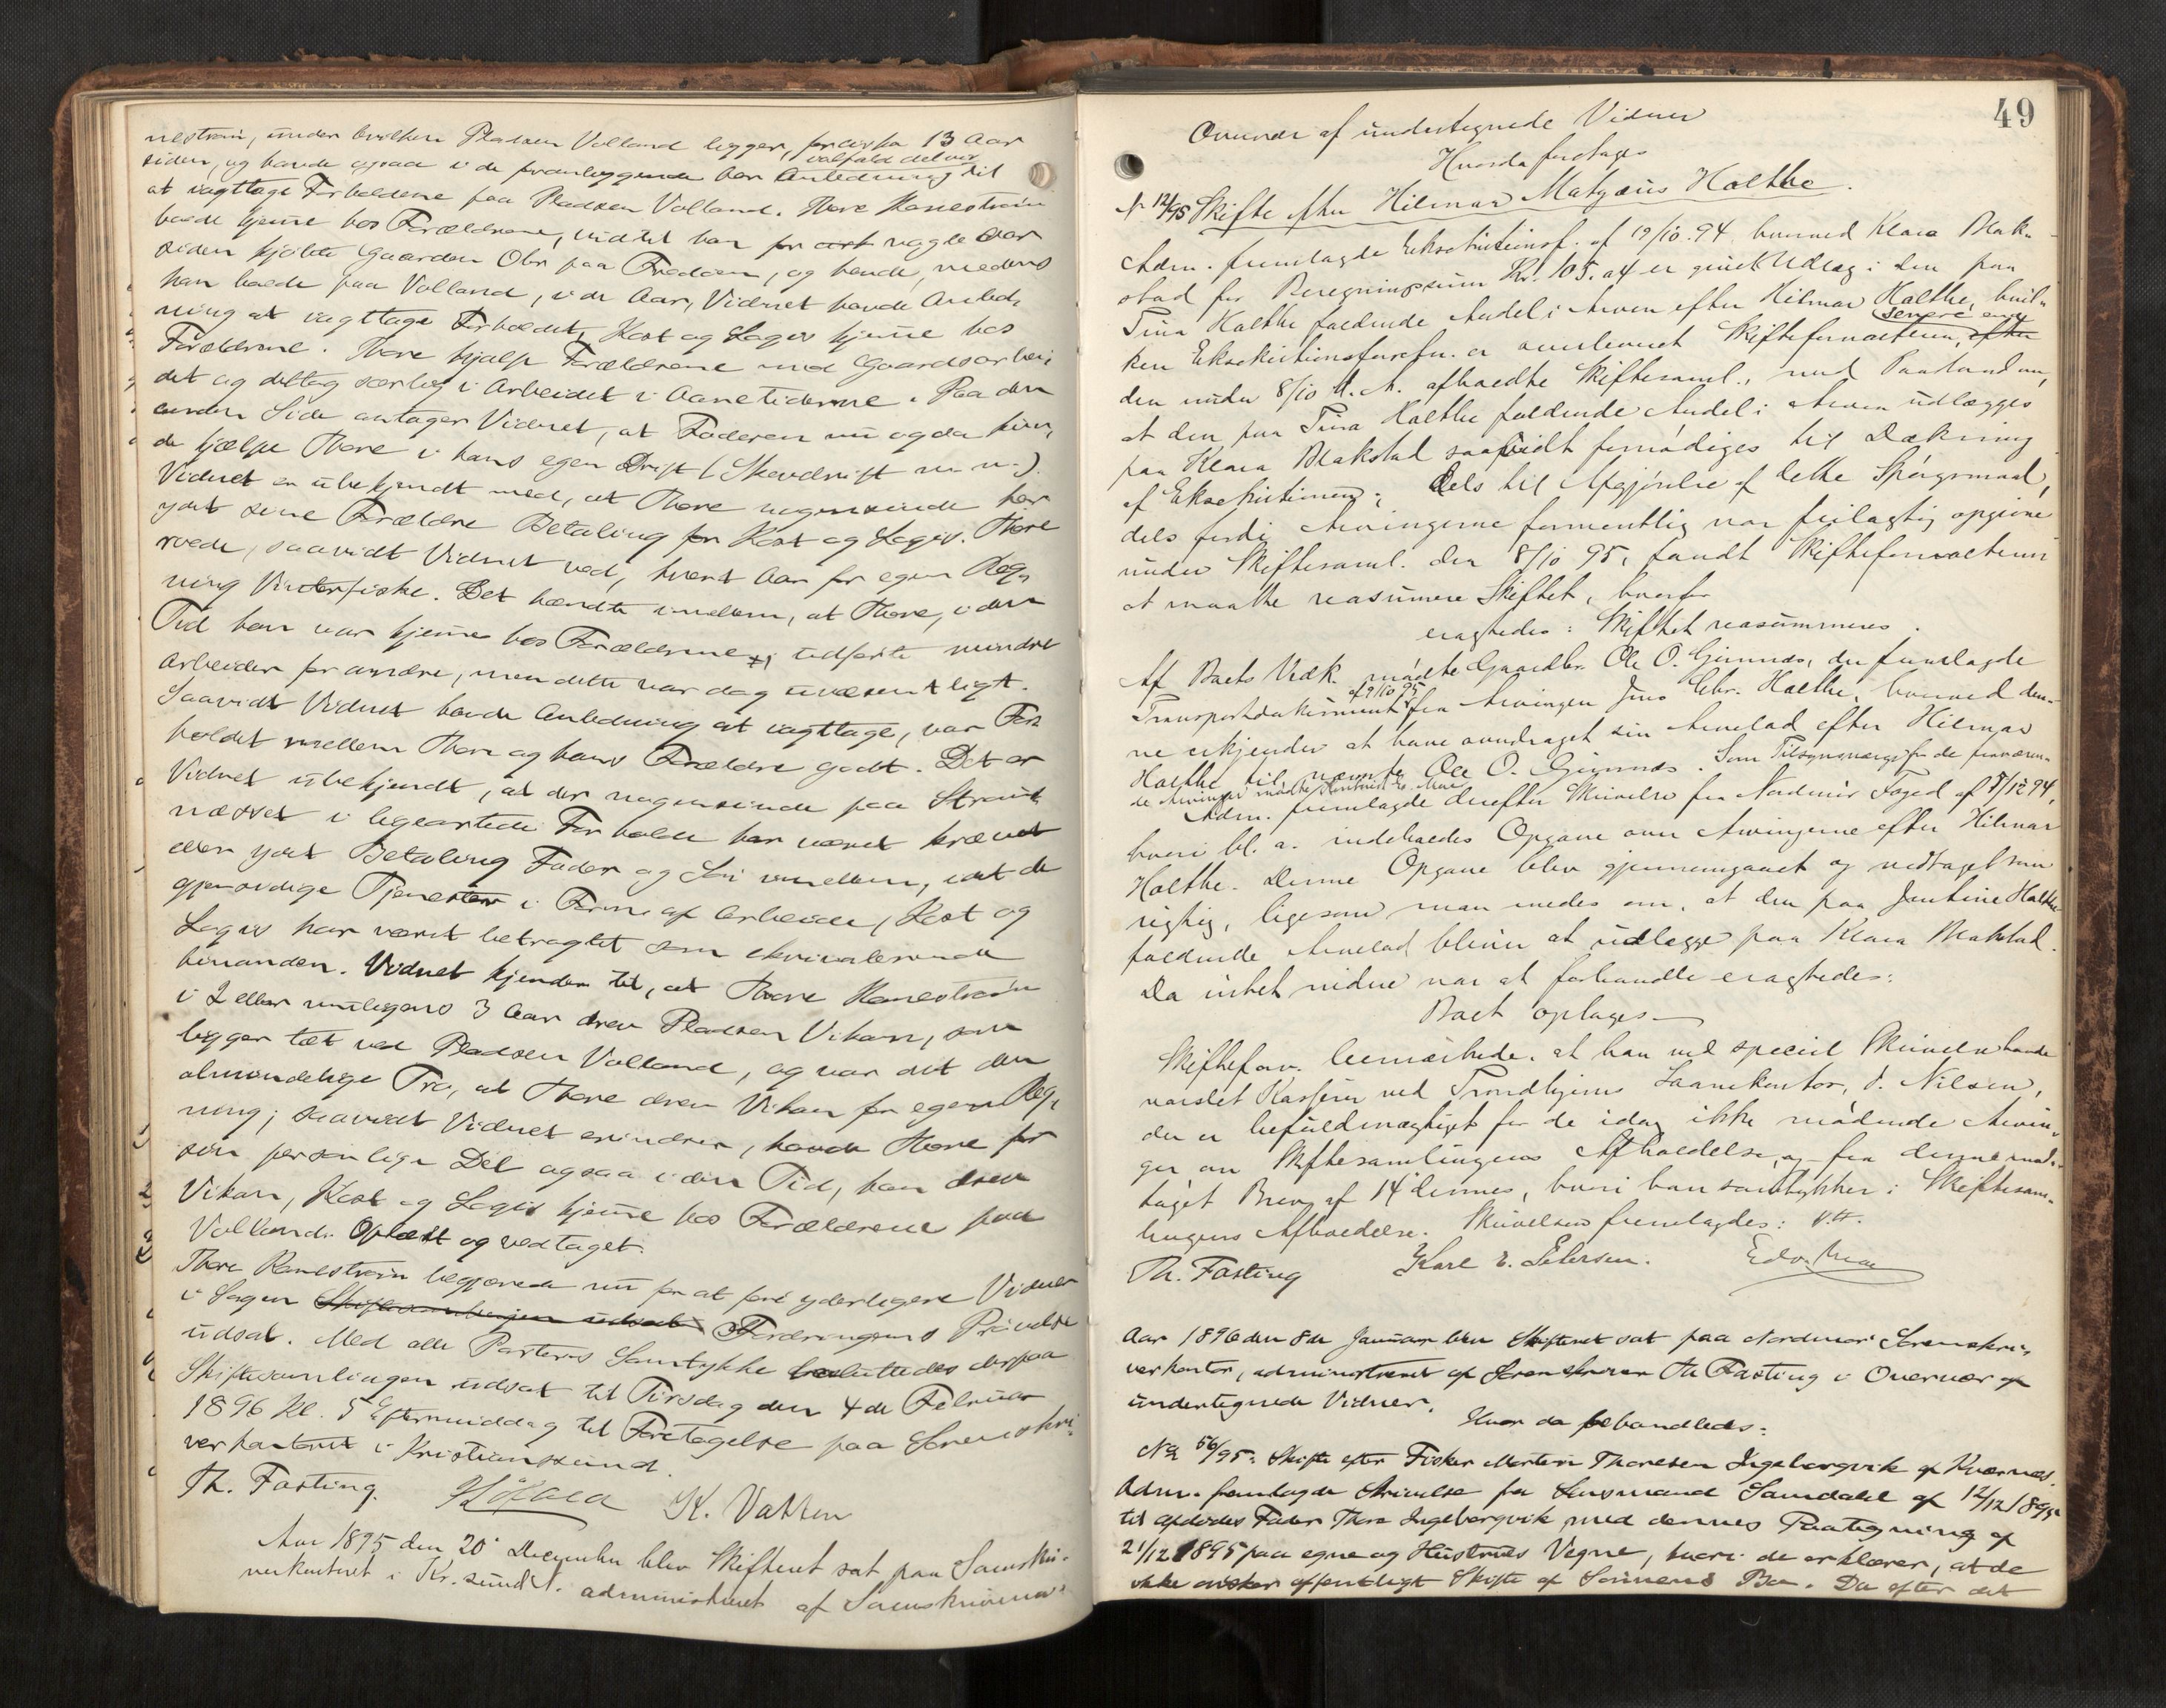 nestrøm, under hvilken Pladsen Volland ligger, for cirka 13 Aar
siden, og havde ogsaa i de foranliggende Aar ialfald delvis Anledning til
at iagttage Forholdene paa Pladsen Volland. Thore Hanestrøm
havde hjemme hos Forældrene, indtil han for nogle Aar
siden kjøbte Gaarden Obr paa Fredøen, og havde, medens
han boede paa Volland, i de Aar, Vidnet havde Anled-
ning at iagttage Forholdet, Kost og Logis hjemme hos
Forældrene. Thore hjalp Forældrene med Gaardsarbei-
det og deltog særlig i Arbeidet i Aanetiderne. Paa den
anden Side antager Vidnet, at Faderen nu og da kun-
de hjælpe Thore i hans egen Drift (Skovdrift m. m.).
Vidnet er ubekjendt med, at Thore nogensinde har
ydet sine Forældre Betaling for Kost og Logis. Thore
roede, saavidt Vidnet ved, hvert Aar for egen Reg-
ning Vinterfiske. Det hændte imellem, at Thore, i den
Tid han var hjemme hos Forældrene, udførte mindre
Arbeider for andre, men dette var dog uvæsentligt.
Saavidt Vidnet havde Anledning at iagttage, var For-
holdet mellem Thore og hans Forældre godt. Det er
Vidnet ubekjendt, at der nogensinde paa Straum-
næsset i ligeartede Forholde har været krævet
eller ydet Betaling Fader og Søn imellem, idet de
gjensidige Tjenester i Form af Arbeide, Kost og
Logis har været betragtet som ekvivalerende
hinanden. Vidnet kjender til, at Thore Hanestrøm
i 2 eller muligens 3 Aar drev Pladsen Vikan, som
ligger tæt ved Pladsen Volland, og var det den
almindelige Tro, at Thore drev Vikan for egen Reg-
ning; saavidt Vidnet erindrer, havde Thore for
sin personlige Del ogsaa i den Tid, han drev
Vikan, Kost og Logis hjemme hos Forældrene paa
Volland. Oplæst og vedtaget.
Thore Hanestrøm begjærede nu for at føre yderligere Vidner
i Sagen Skiftesamlingen udsat Fordringens Prøvelse
udsat. Med alle Parters Samtykke besluttedes derpaa
Skiftesamlingen udsat til Tirsdag den 4de Februar
1896 Kl. 5 Eftermiddag til Foretagelse paa Sorenskri-
verkontoret i Kristianssund.
Th. Fasting. K. Vatten
Aar 1895 den 20' December blev Skifteret sat paa Sorenskri-
verkontoret i Kr.sund N. administreret af Sorenskriveren
49
Overvær af undertegnede Vidner
Hvorda foretages
N 12/95 Skifte efter Hilmar Matgæus Holthe.
Adm. fremlagde Eksekutionsf. af 19/10.94 hvorved Klara Blak-
stad for Beregningssum Kr. 105.04 er givet Udlæg i den paa
Tina Holthe faldende Andel i Arven efter Hilmar Holthe, hvil-
ken Eksekutionsforretn. er oversendt Skifteforvalteren, efter senere end
den under 8/10 d. A. afholdte Skiftesaml., med Paastand om,
at den paa Tina Holthe faldende Andel i Arven udlægges
paa Klara Blakstad saavidt fornødiges til Dækning
af Eksekutionen. Dels til Afgjørelse af dette Spørgsmaal,
dels fordi Arvingerne formentlig var feilagtig opgivne
under Skiftesaml. den 8/10 95, fandt Skifteforvalteren
at maatte reasumere Skiftet, hvorfor
eragtedes: Skiftet reasummeres.
Af Boets Vedk. mødte Gaardbr. Ole O. Gimnæs, der fremlagde
Transportdokument af 9/10 95 fra Arvingen Jens Chr. Holthe, hvorved den-
ne erkjender at have overdraget sin Arvelod efter Hilmar
Holthe til nævnte Ole O. Gimnæs. Som Tilsynsværge for de fraværen-
de Arvinger mødte
Adm. fremlagde derefter Skrivelse fra Nordmør Foged af 7/12 94,
hvori bl. a. indeholdes Opgave over Arvingerne efter Hilmar
Holthe. Denne Opgave blev gjennemgaaet og vedtaget som
rigtig, ligesom man enedes om, at den paa Jentine Holthe
faldende Arvelod bliver at udlægge paa Klara Blakstad.
Da intet videre var at forhandle eragtedes:
Boet optages
Skifteforv. bemærkede, at han ved speciel Skrivelse havde
varslet Kasserer ved Trondhjems Laanekontor, J. Nilsen,
der er befuldmægtiget for de idag ikke mødende Arvin-
ger om Skiftesamlingens Afholdelse, og fra denne mod-
taget Brev af 14 dennes, hvori han samtykker i Skiftesam-
lingens Afholdelse. Skrivelsen fremlagdes:
Th. Fasting Karl E. Petersen. Edv. Moe
Aar 1896 den 8de Januar blev Skifteret sat paa Nordmør Sorenskri-
verkontor, administreret af Sorenskriver Th Fasting i Overvær af
undertegnede Vidner.
Hvor da behandledes:
No 56/95. Skifte efter Fisker Morten Thoresen Ingebergvik af Kværnes.
Adm. fremlagde Skrivelse fra Lensmand Samdahl af 12/12 1895
til afdødes Fader Thore Ingebergvik med dennes Paategning af
21/12 1895 paa egne og Hustrues Vegne, hvori de erklærer, at de
ikke ønsker offentligt Skifte af Sønnens Bo. Da efter det